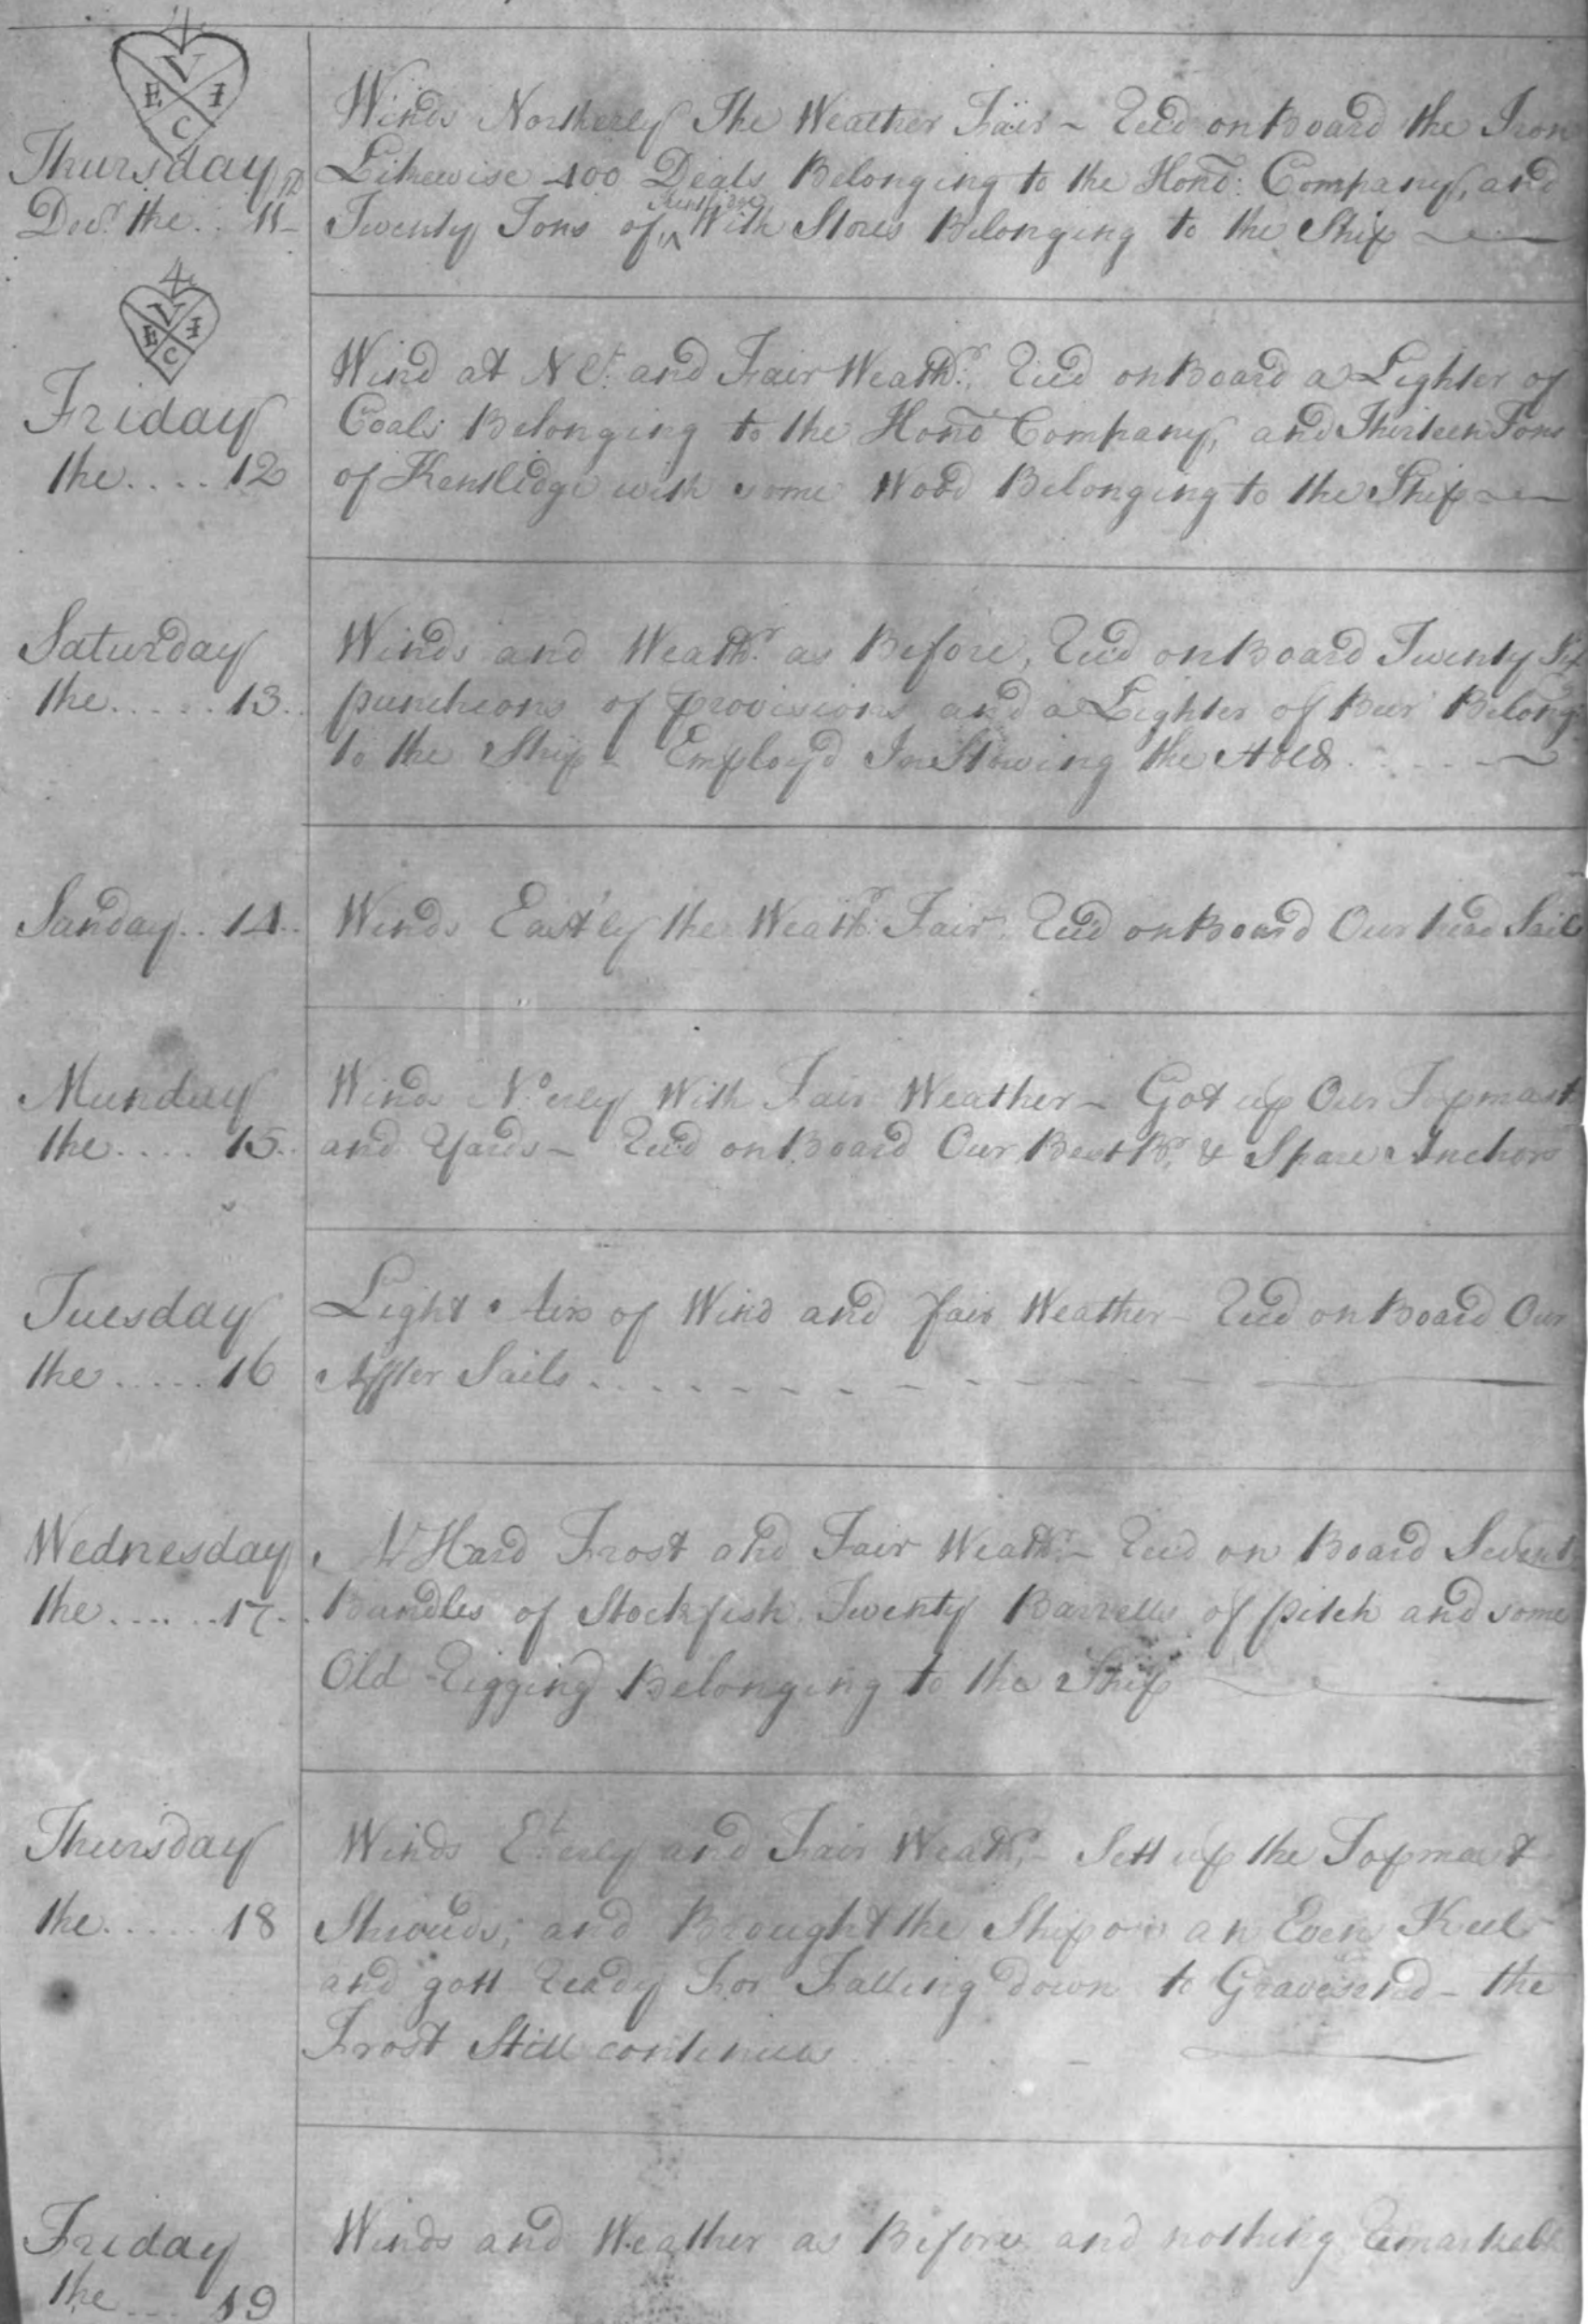 4
V
E I
C
Thursday
Decr. the .. 11
Winds Northerly The Weather Fair - Recd on Board the Iron
Likewise 400 Deals Belonging to the Hond: Company, and
Kentledge
Twenty Tons of ^ With Stores Belonging to the Ship
4
V
E I
C
Friday
the .... 12
Wind at N Et. and Fair Weathr. Recd on Board a Lighter of
Coals Belonging to the Hond Company, and Thirteen Tons
of Kentledge with some Wood Belonging to the Ship
Saturday
the ..... 13
Winds and Weathr. as Before, Recd on Board Twenty Six
puncheons of provisions and a Lighter of Beer Belong
to the Ship - Employd In Stowing the Hold
Sanday .. 14
Winds Eastly the Weathr. Fair Recd on Board Our head Sails
Munday
the .... 15
Winds Noerly With Fair Weather - Got up Our Topmast
and Yards - Recd on Board Our Best Br. & Spare Anchors
Tuesday
the ..... 16
Light Airs of Wind and fair Weather - Recd on Board Our
After Sails
Wednesday
the ...... 17
A Hard Frost and Fair Weathr. - Recd on Board Sevent
Bundles of Stockfish Twenty Barrells of pitch and some
Old Rigging Belonging to the Ship
Thursday
the ...... 18
Winds Eterly and Fair Weathr. - Sett up the Topmast
Shrouds, and Brought the Ship on an Even Keel
and gott Ready For Falling down to Gravesend - the
Frost Still continues
Friday
the ... 19
Winds and Weather as Before and nothing Remarkable